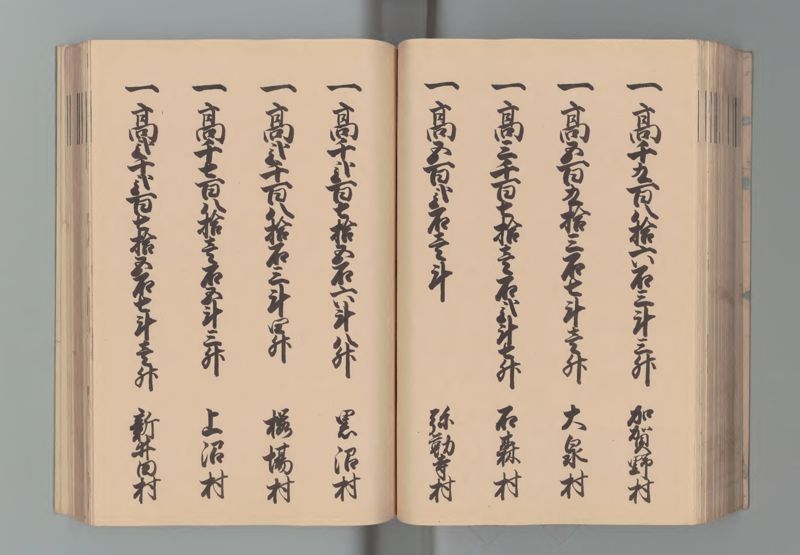 一高千九百八拾六石三斗三升 加賀野村
一高五百九拾三石七斗壱升 大泉村
一高三千百七拾壱石弐斗七升 石森村
一高五百弐石壱斗 弥勒寺村
一高千弐百七拾五石六斗八升 黒沼村
一高弐千百八拾石三斗四升 桜場村
一高千七百八拾壱石五斗三升 上沼村
一高弐千弐百七拾五石七斗壱升 新井田村